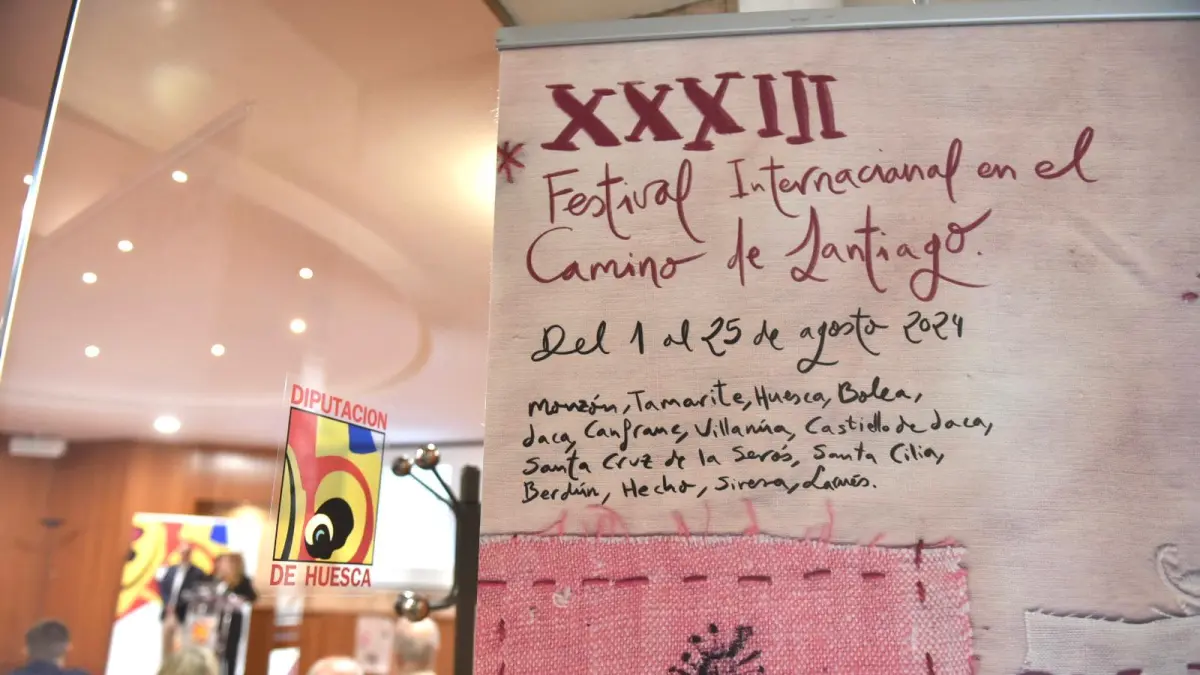 XXXIII
Festival Internacional en el
Camino de Santiago.
Del 1 al 25 de agosto 2024
Monzón, Tamarite, Huesca, Bolea,
Jaca, Canfranc, Villanúa, Castiello de Jaca,
Santa Cruz de la Serós, Santa Cilia,
Berdún, Hecho, Siresa, Larués.
DIPUTACION
DE HUESCA